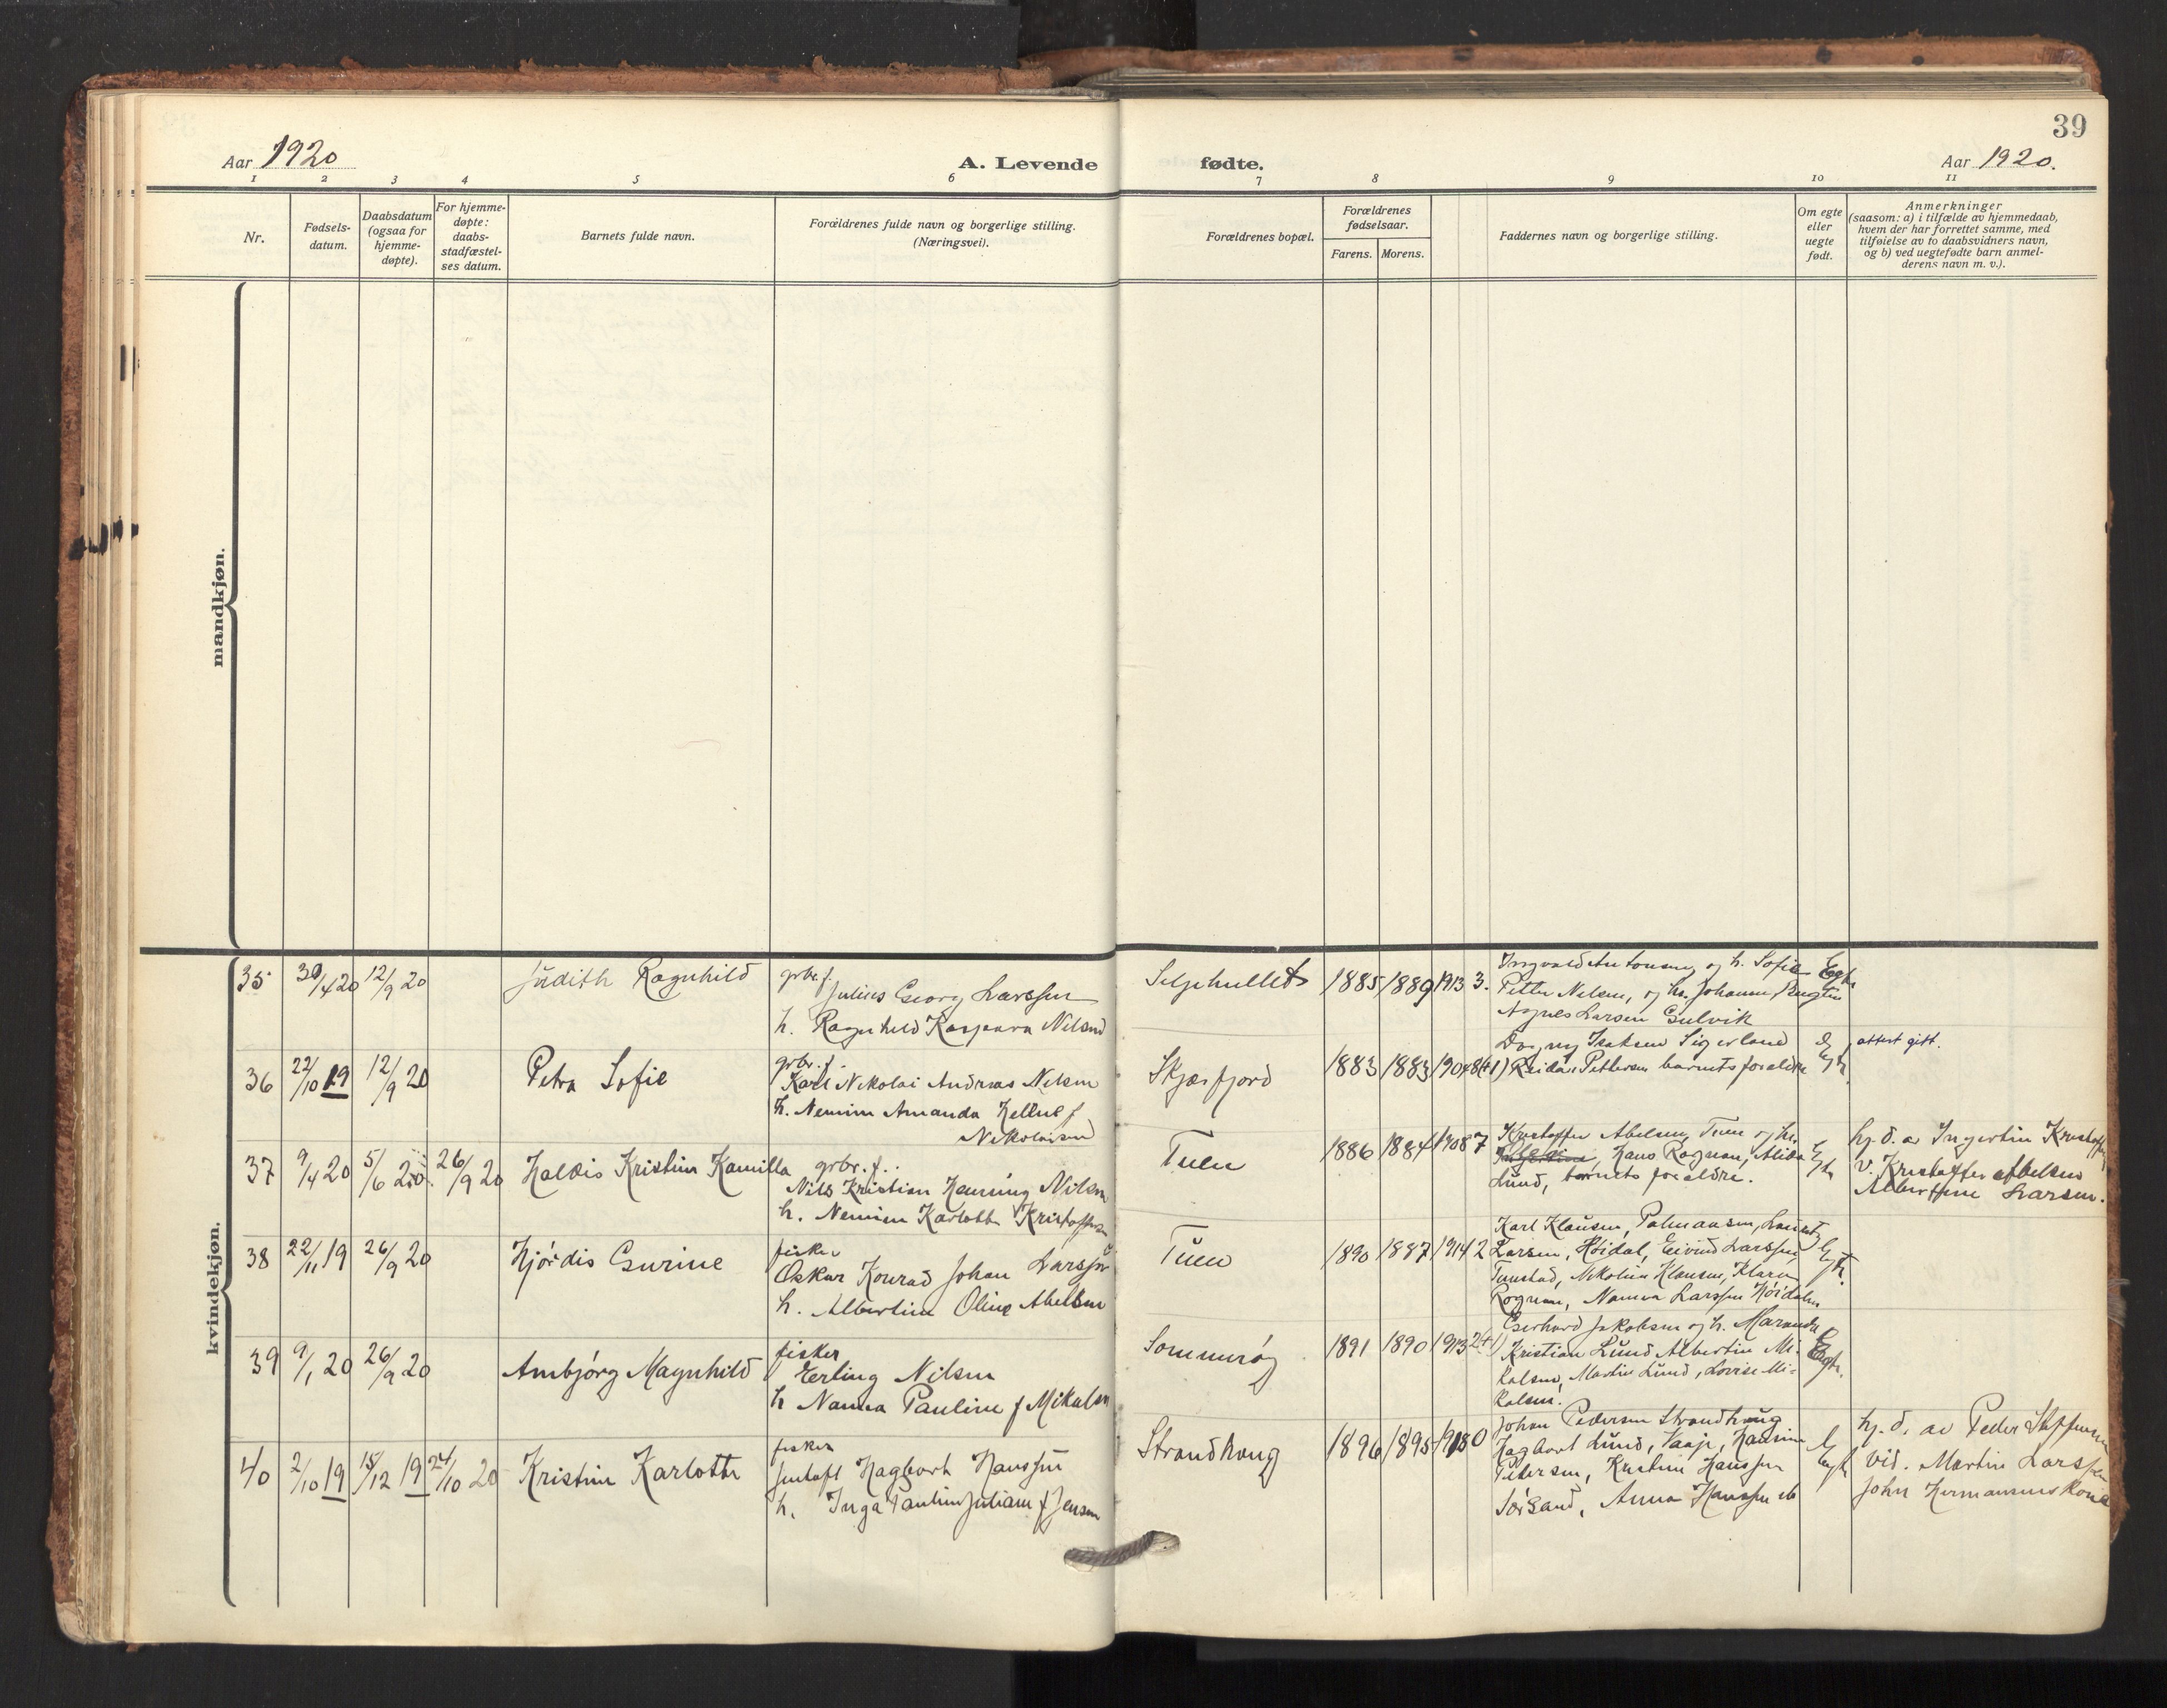 39
Aar 1920
A. Levende fødte.
Aar 1920.
1 2 3 4 5 6 7 8 9 10 11
Nr.
Fødsels-
datum.
Daabsdatum
(ogsaa for
hjemme-
døpte).
For hjemme-
døpte:
daabs-
stadfæstel-
ses datum.
Barnets fulde navn.
Forældrenes fulde navn og borgerlige stilling.
(Næringsvei).
Forældrenes bopæl.
Forældrenes
fødselsaar.
Farens. Morens.
Faddernes navn og borgerlige stilling.
Om egte
eller
uegte
født.
Anmerkninger
(saasom: a) i tilfælde av hjemmedaab,
hvem der har forrettet samme, med
tilføielse av to daabsvidners navn,
og b) ved uegtefødte barn anmel-
derens navn m. v.).
mandkjøn.
kvindekjøn.
35 30/4 20 12/9 20 Judith Ragnhild
grbr. f.
Julius Georg Larssen
h. Ragnhild Kaspara Nilsen
1885 1889 1913 3.
og h. Sofie
Petter Nelsen, og h. Johanne
Agnes Larsen Gulvik
Egte
36 22/10 19 12/9 20 Petra Sofie
grbr. f.
Karl Nikolai Andreas Nilsen
h. Amanda f
Nikolaisen
Skjærfjord
1883 1883 1904 8(+1)
Dagny Isaksen
Reidar Pettersen barnets forældre
Egte
attest gitt.
37 9/4 20 5/6 20. 26/9 20 Haldis Kristine Kamilla
grbr. f.
Nils Kristian Henning Nilsen
h. Karlotte Kristoffersen
Tuen
1886 1884 1908 7
Kristoffer Abelsen, Tuen og h.
Hans Rognan, Alida
Lund, barnets forældre.
Egte
hj. d. av Ingertine Kristoff
v. Kristoffer Abelsen
Albertine Larsen.
38 22/11 19 26/9 20 Hjørdis Gurine
fisker
Oskar Konrad Johan Larssen
h. Albertine Oline Abelsen
Tuen
1890 1887 1914 2
Karl Klausen,
Larsen, Høidal, Eivind Larssen
Tunstad, Nikoline Klausen, Klara
Rognan, Larssen Høidalen
Egte.
39 9/1 20 26/9 20 Arnbjørg Magnhild
fisker
Erling Nilsen
h Nanna Pauline f Mikalsen
Sommerøy
1891 1890 1913 2+1)
Gerhard Jakobsen og h.
Kristian Lund Albertine Mi-
kalsen, Martin Lund, Lovise Mi-
kalsen.
Egte.
40 2/10 19 15/12 19 24/10 20 Kristine Karlotte
fisker
Hagbart Hanssen
h. Inga Pauline Juliane f Jensen
Strandhaug
1896 1895 1918 0
Johan Pedersen Strandhaug
Hagbart Lund,
Petersen, Kristine Hanssen
Sørsand, Anna Hanssen
Egte
hj. d. av Peder Steffensen
vid. Martin Larssen
John